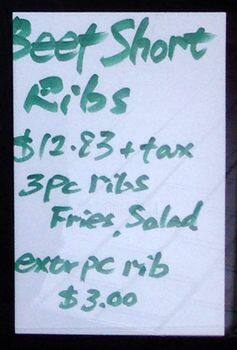 Beef Short
Ribs
$12.93 + tax
3pc ribs
Fries, Salad
extr pc rib
$3.00